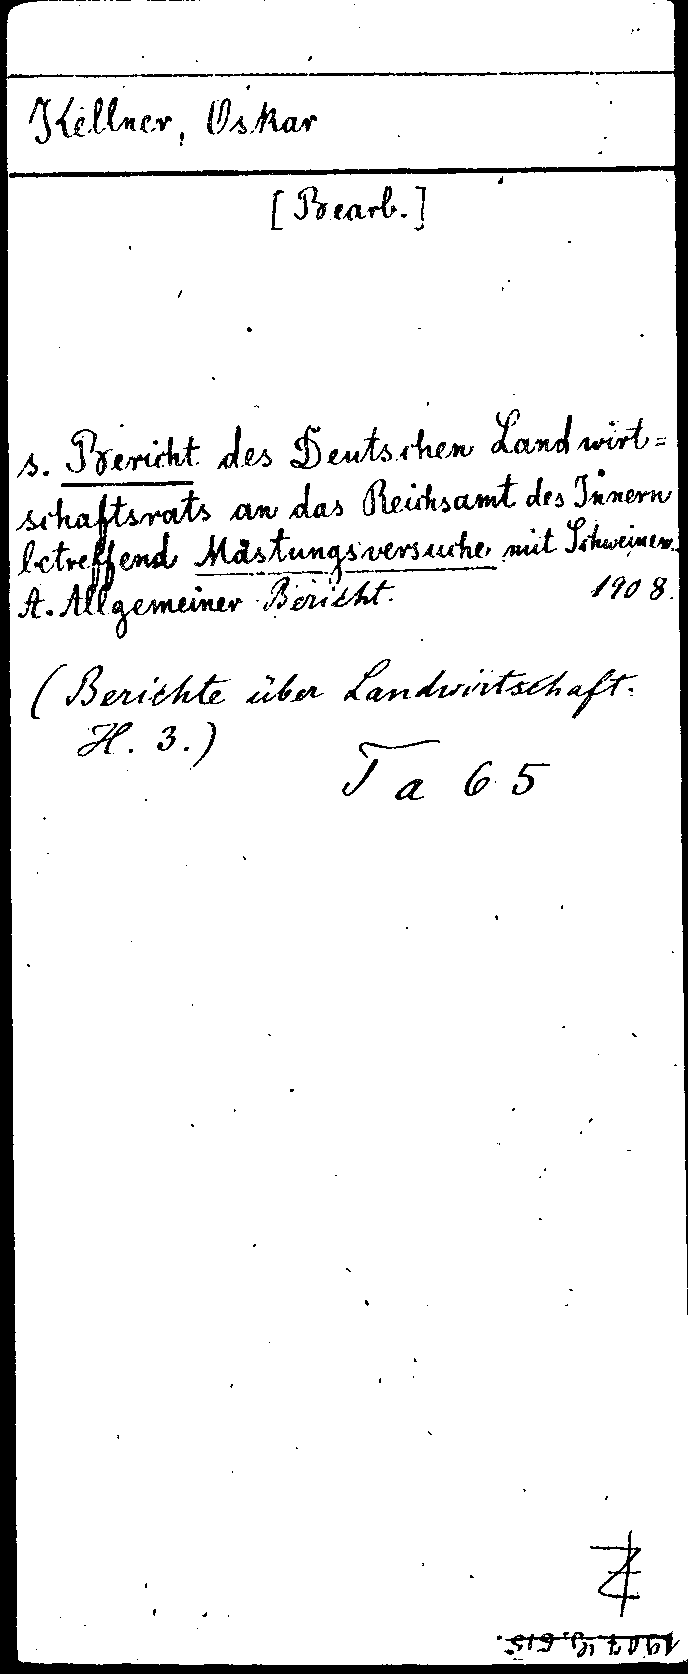 Kellner, Oskar
[Bearb.]
s. Bericht des Deutschen Landwirt=
schaftsrats an das Reichsamt des Innern
betreffend Mästungsversuche mit Schweinen.
A. Allgemeiner Bericht. 1908.
(Berichte über Landwirtschaft.
H. 3.)
Ta 65